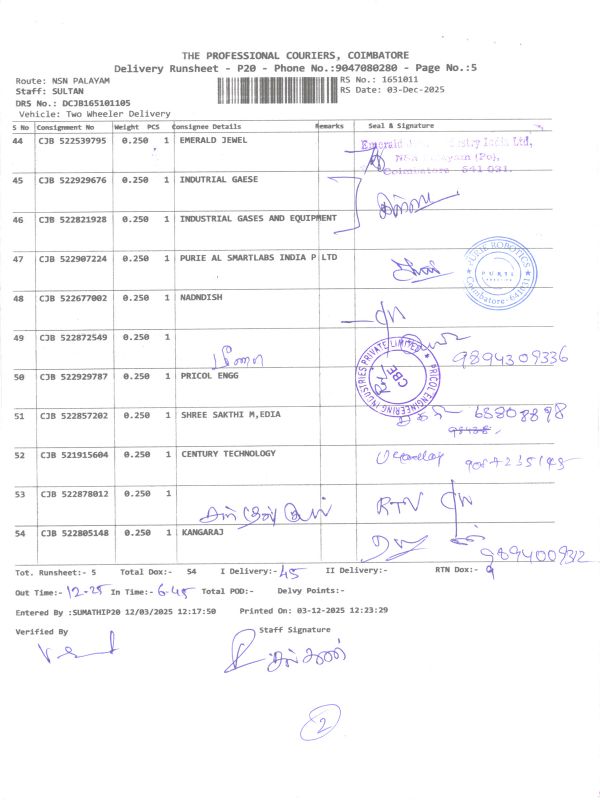 THE PROFESSIONAL COURIERS, COIMBATORE
Delivery Runsheet - P20 - Phone No.:9047080280 - Page No.:5
Route: NSN PALAYAM RS No.: 1651011
Staff: SULTAN RS Date: 03-Dec-2025
DRS No.: DCJB165101105
Vehicle: Two Wheeler Delivery
S No Consignment No Weight PCS Consignee Details Remarks Seal & Signature
44 CJB 522539795 0.250 1 EMERALD JEWEL
Emerald Jewel Industry India Ltd,
NSN Palayam (Po),
Coimbatore 641 031.
45 CJB 522929676 0.250 1 INDUTRIAL GAESE
46 CJB 522821928 0.250 1 INDUSTRIAL GASES AND EQUIPMENT
47 CJB 522907224 0.250 1 PURIE AL SMARTLABS INDIA P LTD
Coimbatore-641031
48 CJB 522677002 0.250 1 NADNDISH
49 CJB 522872549 0.250 1
9894309336
50 CJB 522929787 0.250 1 PRICOL ENGG
PRICOL ENGINEERING INDUSTRIES PRIVATE LIMITED
CBE
51 CJB 522857202 0.250 1 SHREE SAKTHI M,EDIA
52 CJB 521915604 0.250 1 CENTURY TECHNOLOGY
53 CJB 522878012 0.250 1 RTN
54 CJB 522805148 0.250 1 KANGARAJ
9894009312
Tot. Runsheet:- 5 Total Dox:- 54 I Delivery:- 45 II Delivery:- RTN Dox:- 9
Out Time:- 12-25 In Time:- 6-45 Total POD:- Delvy Points:-
Entered By :SUMATHIP20 12/03/2025 12:17:50 Printed On: 03-12-2025 12:23:29
Verified By Staff Signature
2